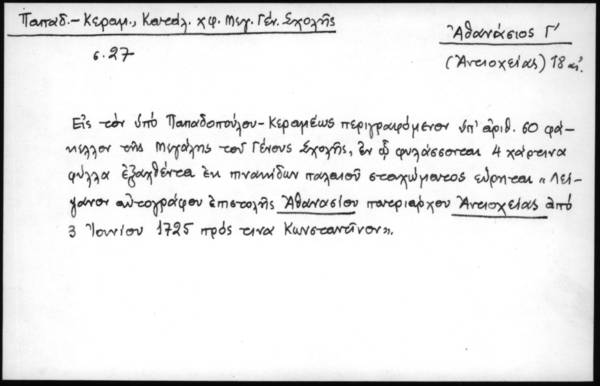 Παπαδ.-Κεραμ., Καταλ. χφ. Μεγ. Γέν. Σχολῆς
σ. 27
Ἀθανάσιος Γ΄
(Ἀντιοχείας) 18 αἰ.
Εἰς τὸν ὑπὸ Παπαδοπούλου-Κεραμέως περιγραφόμενον ὑπ' ἀριθ. 60 φά-
κελλον τῆς Μεγάλης τοῦ Γένους Σχολῆς, ἐν ᾧ φυλάσσονται 4 χάρτινα
φύλλα ἐξαχθέντα ἐκ πινακίδων παλαιοῦ σταχώματος εὕρηται «Λεί-
ψανον αὐτογράφου ἐπιστολῆς Ἀθανασίου πατριάρχου Ἀντιοχείας ἀπὸ
3 Ἰουνίου 1725 πρός τινα Κωνσταντῖνον».